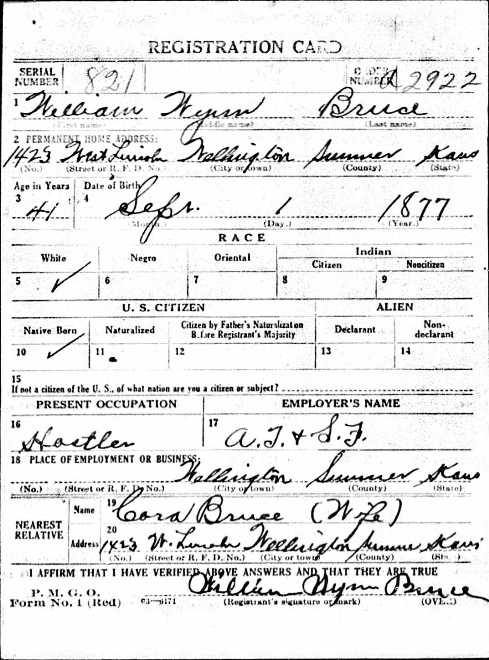 REGISTRATION CARD
SERIAL NUMBER 821 ORDER NUMBER A2922
1 William Wynn Bruce
(First name) (Middle name) (Last name)
2 PERMANENT HOME ADDRESS:
1423 West Lincoln Wellington Sumner Kans
(No.) (Street or R. F. D. No.) (City or town) (County) (State)
Age in Years Date of Birth
3 41 4 Sept. 1 1877
(Month.) (Day.) (Year.)
RACE
White Negro Oriental Indian
Citizen Noncitizen
5 ✓ 6 7 8 9
U. S. CITIZEN ALIEN
Native Born Naturalized Citizen by Father's Naturalization Before Registrant's Majority Declarant Non-declarant
10 ✓ 11 12 13 14
15
If not a citizen of the U. S., of what nation are you a citizen or subject?
PRESENT OCCUPATION EMPLOYER'S NAME
16 Hostler 17 A.T. & S.F.
18 PLACE OF EMPLOYMENT OR BUSINESS:
Wellington Sumner Kans
(No.) (Street or R. F. D. No.) (City or town) (County) (State)
NEAREST RELATIVE Name 19 Cora Bruce (Wife)
Address 20 1423 W. Lincoln Wellington Sumner Kans
(No.) (Street or R. F. D. No.) (City or town) (County) (State)
I AFFIRM THAT I HAVE VERIFIED ABOVE ANSWERS AND THAT THEY ARE TRUE
P. M. G. O.
Form No. 1 (Red) 03-6171 William Wynn Bruce
(Registrant's signature or mark) (OVER)